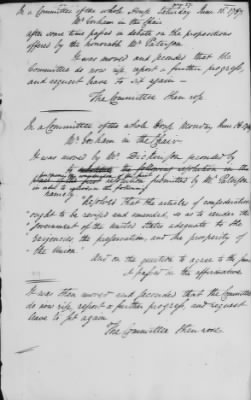 In a Committee of the whole House Saturday June 16. 1787
Mr Gorham in the Chair
after some time passed in debate on the propositions
offered by the honorable Mr Paterson
It was moved and seconded that the
Committee do now rise, report a further progress,
and request leave to sit again
The Committee then rose.
In a Committee of the whole House Monday June 18. 1787
Mr Gorham in the Chair
It was moved by Mr. Dickinson seconded by
to the following resolution in the
submitted by Mr Paterson
in order to
namely
Resolved that the articles of confederation
ought to be revised and amended, so as to render the
government of the united States adequate to the
exigencies, the preservation, and the prosperity of
the Union.
And on the question to agree to the same
it passed in the affirmative
It was then moved and seconded that the Committee
do now rise, report a further progress, and request
leave to sit again
The Committee then rose